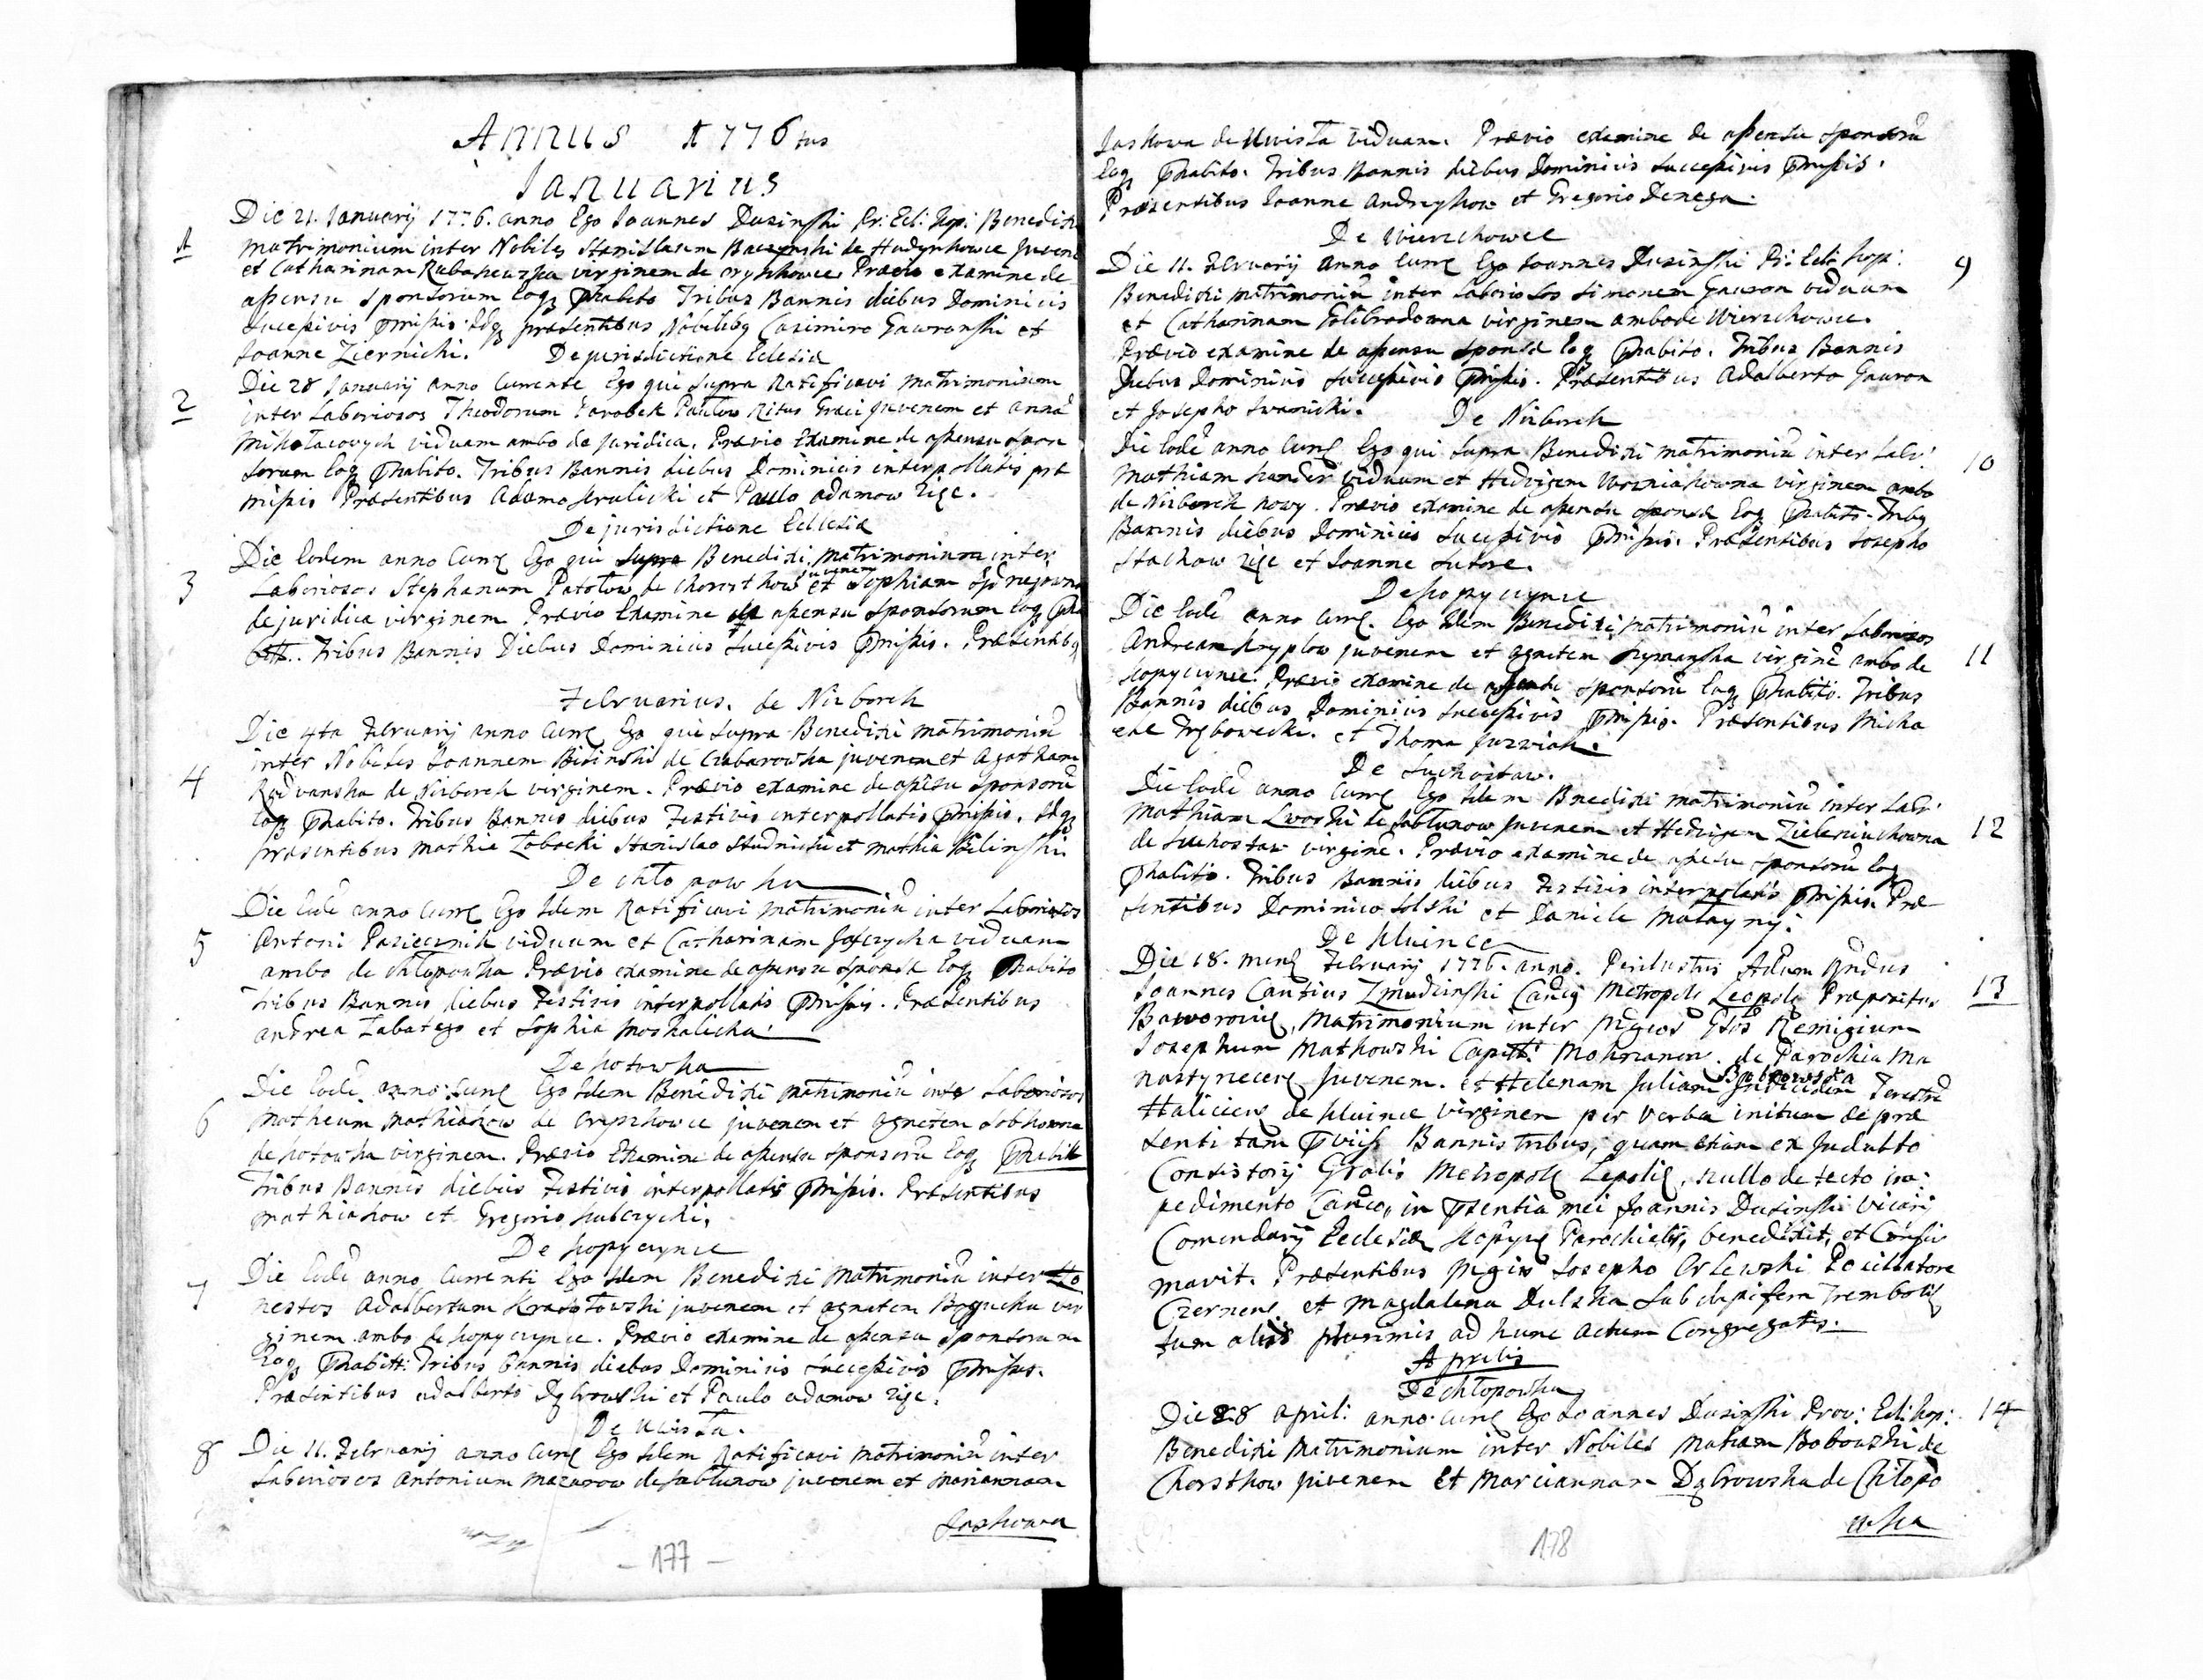 Annus 1776tus
Januarius
Die 21. Januarij 1776. anno Ego Joannes Dusinski Pr: Ecl: Kop: Benedixi
1
Matrimonium inter Nobiles Stanislaum de Hadynkowce juvenem
et Catharinam virginem de Prævio examine de
assensu sponsorum eoq phabito Tribus Bannis diebus Dominicis
sucessivis pmissis. Idq præsentibus Nobilibq Casimiro Gawronski et
Joanne Ziernicki. De jurisdictione Eclesiæ
Die 28 Januarij anno Currente Ego qui supra Ratificavi Matrimonium
2
inter Laboriosos Theodorum Parobek Pautow Ritus Græci juvenem et annā
Mikołaiowych viduam ambo de juridica. Prævio Examine de assensu spon
sorum eoq phabito. Tribus Bannis diebus Dominicis interpollatis præ
missis Præsentibus Adamo Krulicki et Paulo adamow
De jurisdictione Ecclesiæ
Die Eodem anno Curre Ego qui supra Benedixi Matrimonium inter
juvenem
3
Laboriosos Stephanum Patołow de Chorostkow et Sophiam
de juridica virginem Prævio Examine de assensu sponsorum eoq pha
bito. Tribus Bannis Diebus Dominicis sucessivis pmissis. Præsentibq
Februarius. de Nizborek
Die 4ta Februarij anno Curre Ego qui supra Benedixi matrimoniū
inter Nobiles Joannem Bilinski de Czabarowka juvenem et Agatham
4
Radvanska de Nizborek virginem. Prævio examine de assēsu sponsorū
eoq phabito. Tribus Bannis diebus Festivis interpollatis pmissis. Idq
præsentibus Mathia Zobocki Stanislao Studnicki et Mathia Bilinski
De Chłopowka
Die Eodē anno Curre Ego Idem Ratificavi Matrimoniū inter Laboriosos
5
Antoni Pasiecznik viduum et Catharinam viduam
ambo de Chłopowka Prævio examine de assensu sponsæ Eoq phabito
Tribus Bannis diebus Festivis interpollatis pmissis. Præsentibus
Andrea Zabatego et Sophia Moskalicha.
De Kotowka
Die Eodē anno Curre Ego Idem Benedixi Matrimoniū inter Laboriosos
6
Matheum Mathiaszow de juvenem et Agnetem Sobkowna
de Kotowka virginem. Prævio Examine de assensu sponsorū Eoq phabito
Tribus Bannis diebus Festivis interpollatis pmissis. Præsentibus
Mathiaszow et Gregorio Kulczycki.
De Kopyczynce
Die Eodē anno Currenti Ego Idem Benedixi Matrimoniū inter Ho
7
nestos Adalbertum Krasotowski juvenem et Agnetem Bogucka vir
ginem ambo de Kopyczynce. Prævio examine de assensu sponsorum
Eoq phabito: Tribus Bannis diebus Dominicis successivis pmissis.
Præsentibus adalberto Dąbrowski et Paulo adamow
De Uwisła.
8
Die 11. Februarij anno Curre Ego Idem Ratificavi Matrimoniū inter
Laboriosos Antonium Mazurow de Jabłunow juvenem et Mariannam
Jaskowa
– 177 –
Jaskowa de Uwisła viduam. Prævio examine de assensu sponsorū
Eoq phabito. Tribus Bannis diebus Dominicis successivis pmissis.
Præsentibus Joanne Andreyków et Gregorio Denega.
De Wierzchowce
Die 11. Februarij anno Curre Ego Joannes Dusinski Pr: Ecl: Kop:
9
Benedixi matrimoniū inter Laboriosos Simonem Gauron viduum
et Catharinam Golibrodowna virginem ambo de Wierzchowce.
Prævio examine de assensu sponsæ Eoq phabito. Tribus Bannis
Diebus Dominicis successivis pmissis. Præsentibus Adalberto Gauron
et Josepho Iwanicki. De Nizborek
Die Eodē anno Curre Ego qui supra Benedixi matrimoniū inter Lab:
10
Mathiam viduum et Hedvigem Wozniakowna virginem ambo
de Nizborek nowy. Prævio examine de assensu sponsæ Eoq phabito. Tribq
Bannis diebus Dominicis sucessivis pmissis. Præsentibus Josepho
Stachow et Joanne Sutore.
De Kopyczynce
Die Eodē anno Curre. Ego Idem Benedixi matrimoniū inter Laboriosos
11
Andream Kryplow juvenem et Agnetem Szymanska virginē ambo de
Kopyczynce. Prævio examine de assensu sponsorū Eoq phabito. Tribus
Bannis diebus Dominicis successivis pmissis. Præsentibus Micha
ele Trębowecki. et Thoma
De Suchostaw.
Die Eodē anno Curre Ego Idem Benedixi matrimoniū inter Lab:
12
Mathiam Lworski de Jabłunow juvenem et Hedvigem
de Suchostaw virginē. Prævio examine de assēsu sponsorū Eoq
phabito. Tribus Bannis diebus Festivis interpolatis pmissis. Præ
sentibus Dominico Solski et Daniele
De Kluince
Die 18. mens Februarij 1776. anno. Perillustris Adum Rndus
13
Joannes Cantius Zmudzinski Canq Metropol: Leopol: Præpositus
Baworovie, Matrimonium inter Mgcos Gsos Remigium
Josephum Mathowski Capit: de Parochia Mo
nastyrecens juvenem. et Helenam Juliam Judicidem Terestrē
Bobrowska
Haliciens de Kluince virginem per verba initum de præ
senti tam pviis Bannis Tribus, quam etiam ex Indulto
Consistorij Gralis Metropol: Leopol:, nullo detecto im
pedimento Canco, in psentia mei Joannis Dusinski Vicarij
Comendarij Ecclesiæ Kopyc: Parochielis, benedixit, et Confir
mavit. Præsentibus Mgcis Josepho Orlewski Pocillatore
Czernens. et Magdalena Dulska Subdapifera Trembol:
tum aliis plurimis ad hunc actum Congregatis.
Aprilis
De Chłopowka
Die 28 april: anno Curre Ego Joannes Dusinski Prov: Ecl: Kop:
14
Benedixi Matrimonium inter Nobiles Matiam Bobowski de
Chorstkow juvenem et Marciannam Dąbrowska de Chłopo
wka
178